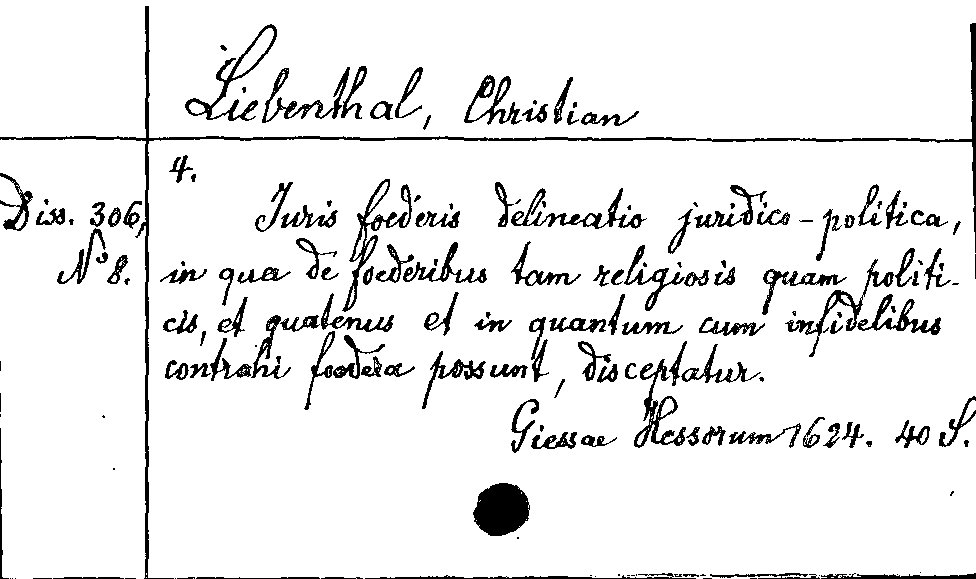 Liebenthal, Christian
4.
Diss. 306,
No 8.
Juris foederis delineatio juridico-politica,
in qua de foederibus tam religiosis quam politi-
cis, et quatenus et in quantum cum infidelibus
contrahi foedera possunt, disceptatur.
Giessae Hessorum 1624. 40 S.